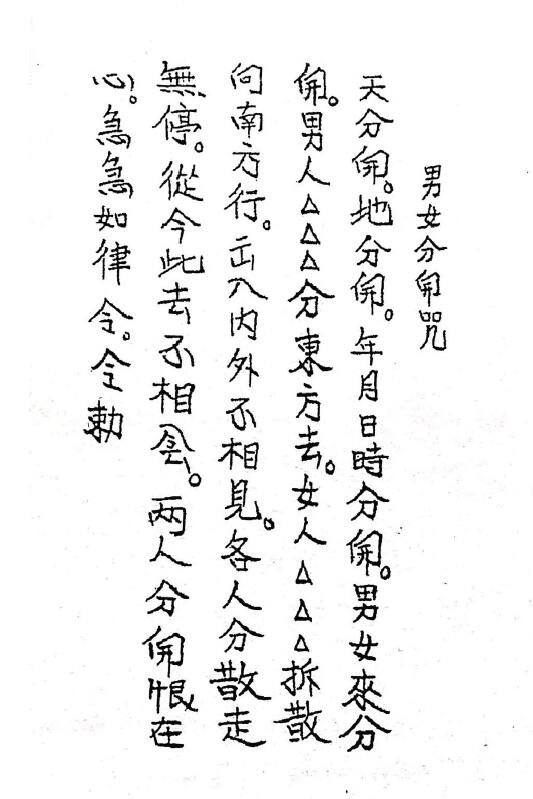 男女分開咒
天分開。地分開。年月日時分開。男女來分
開。男人△△△分東方去。女人△△△拆散
向南方行。出入內外不相見。各人分散走
無停。從今此去不相会。兩人分開恨在
心。急急如律令。令勅